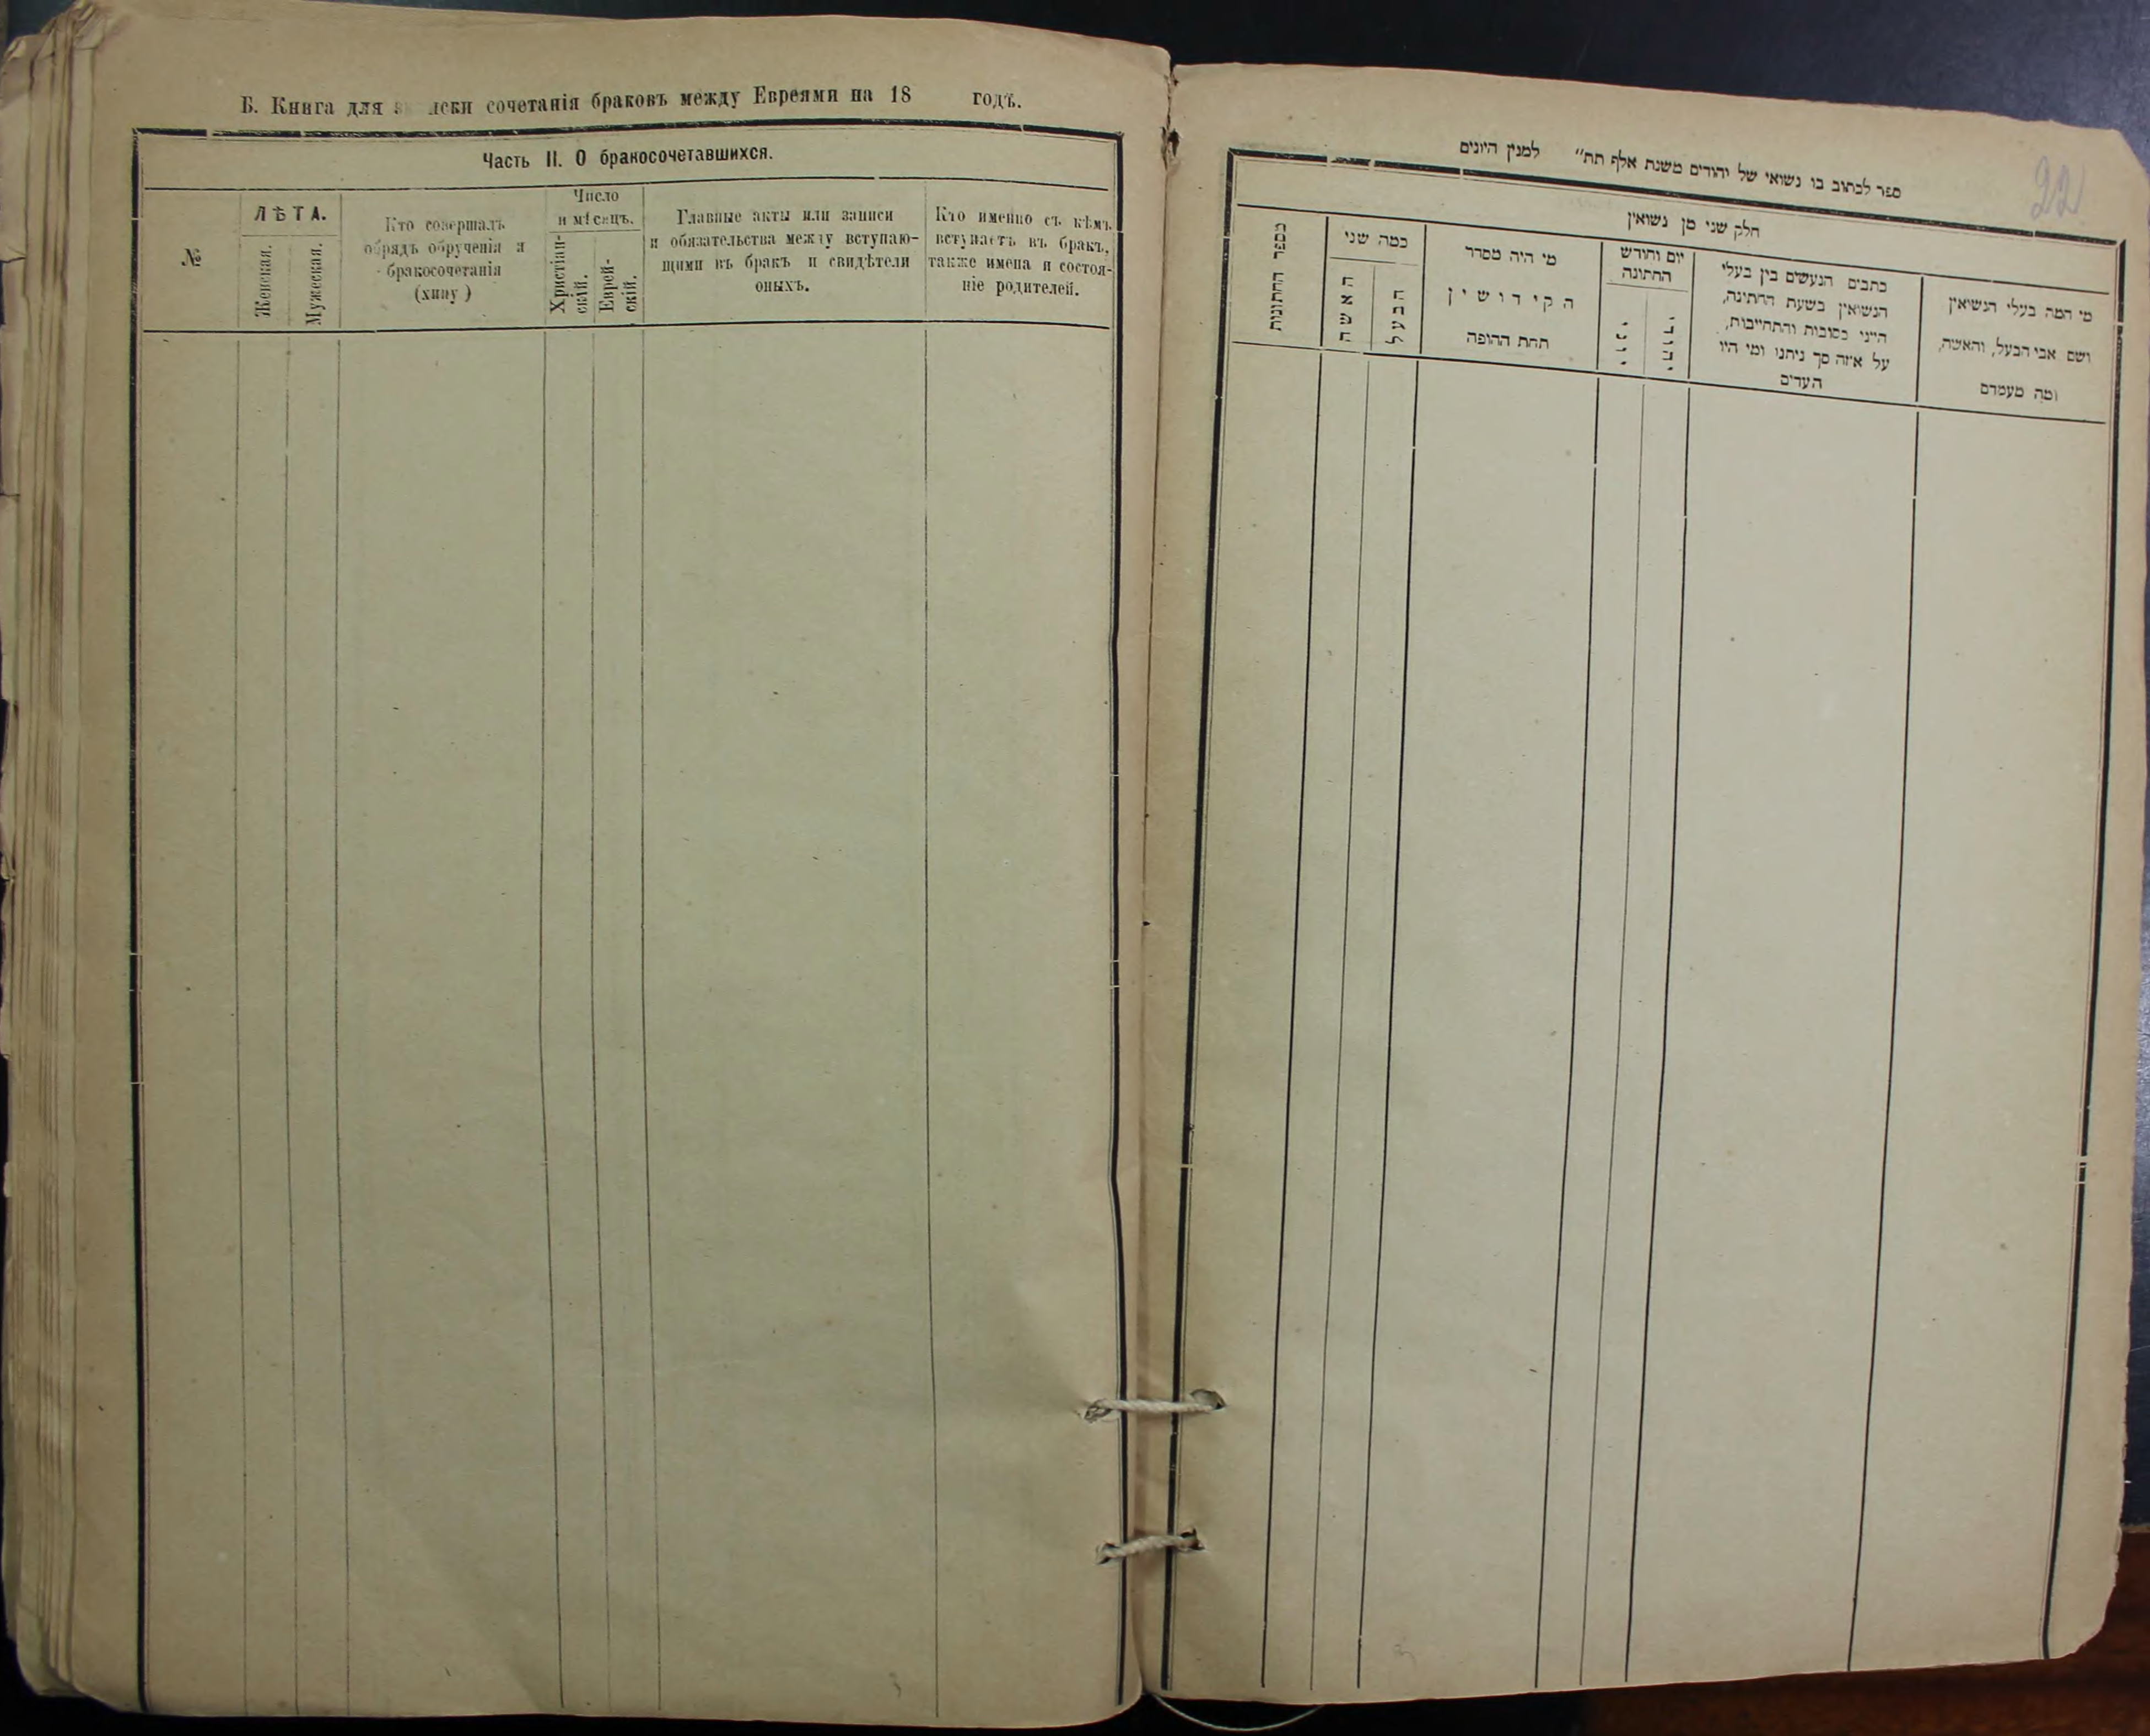 Б. Книга для лски сочетанія браковъ между Евреями на 18 годъ.
Часть II. О бракосочетавшихся.
№
ЛѢТА.
Женская.
Мужеская.
Кто совершалъ
обрядъ обрученія и
бракосочетанія
(хипу )
Число
и мѣсяцъ.
Христіан-
скій.
Еврей-
скій.
Главные акты или записи
и обязательства между вступаю-
щими въ бракъ и свидѣтели
оныхъ.
Кто именно съ кѣмъ
вступаетъ въ бракъ,
также имена и состоя-
ніе родителей.
22
ספר לכתוב בו נשואי של יהודים משנת אלף תת״ למנין היונים
חלק שני מן נשואין
מספר החתונות
כמה שני
האשה
הבעל
מי היה מסדר
הקידושין
תחת החופה
יום וחודש
החתונה
יוני
יהודי
כתבים הנעשים בין בעלי
הנשואין בשעת החתונה,
הייני כתובות והתחייבות,
על איזה סך ניתנו ומי היו
העדים
מי המה בעלי הנשואין
ושם אבי הבעל, והאשה,
ומה מעמדם